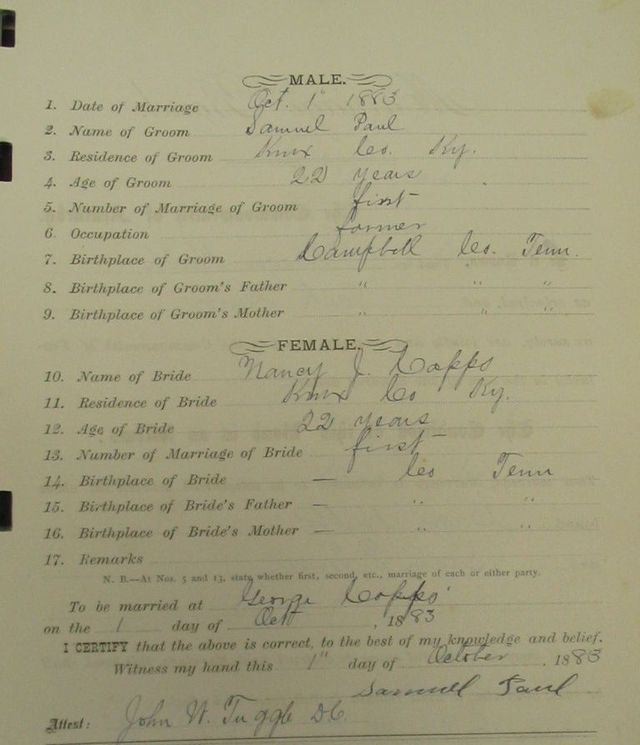 MALE.
1. Date of Marriage Oct. 1" 1883
2. Name of Groom Samuel Paul
3. Residence of Groom Knox Co. Ky.
4. Age of Groom 22 years
5. Number of Marriage of Groom first
6. Occupation farmer
7. Birthplace of Groom Campbell Co. Tenn.
8. Birthplace of Groom's Father " " "
9. Birthplace of Groom's Mother " " "
FEMALE.
10. Name of Bride Nancy J. Capps
11. Residence of Bride Knox Co Ky.
12. Age of Bride 22 years
13. Number of Marriage of Bride first
14. Birthplace of Bride — Co Tenn
15. Birthplace of Bride's Father — " "
16. Birthplace of Bride's Mother — " "
17. Remarks
N. B.—At Nos. 5 and 13, state whether first, second, etc., marriage of each or either party.
To be married at George Capps'
on the 1 day of Oct, 1883
I CERTIFY that the above is correct, to the best of my knowledge and belief.
Witness my hand this 1" day of October, 1883
Samuel Paul
Attest: John W. Tuggle D.C.